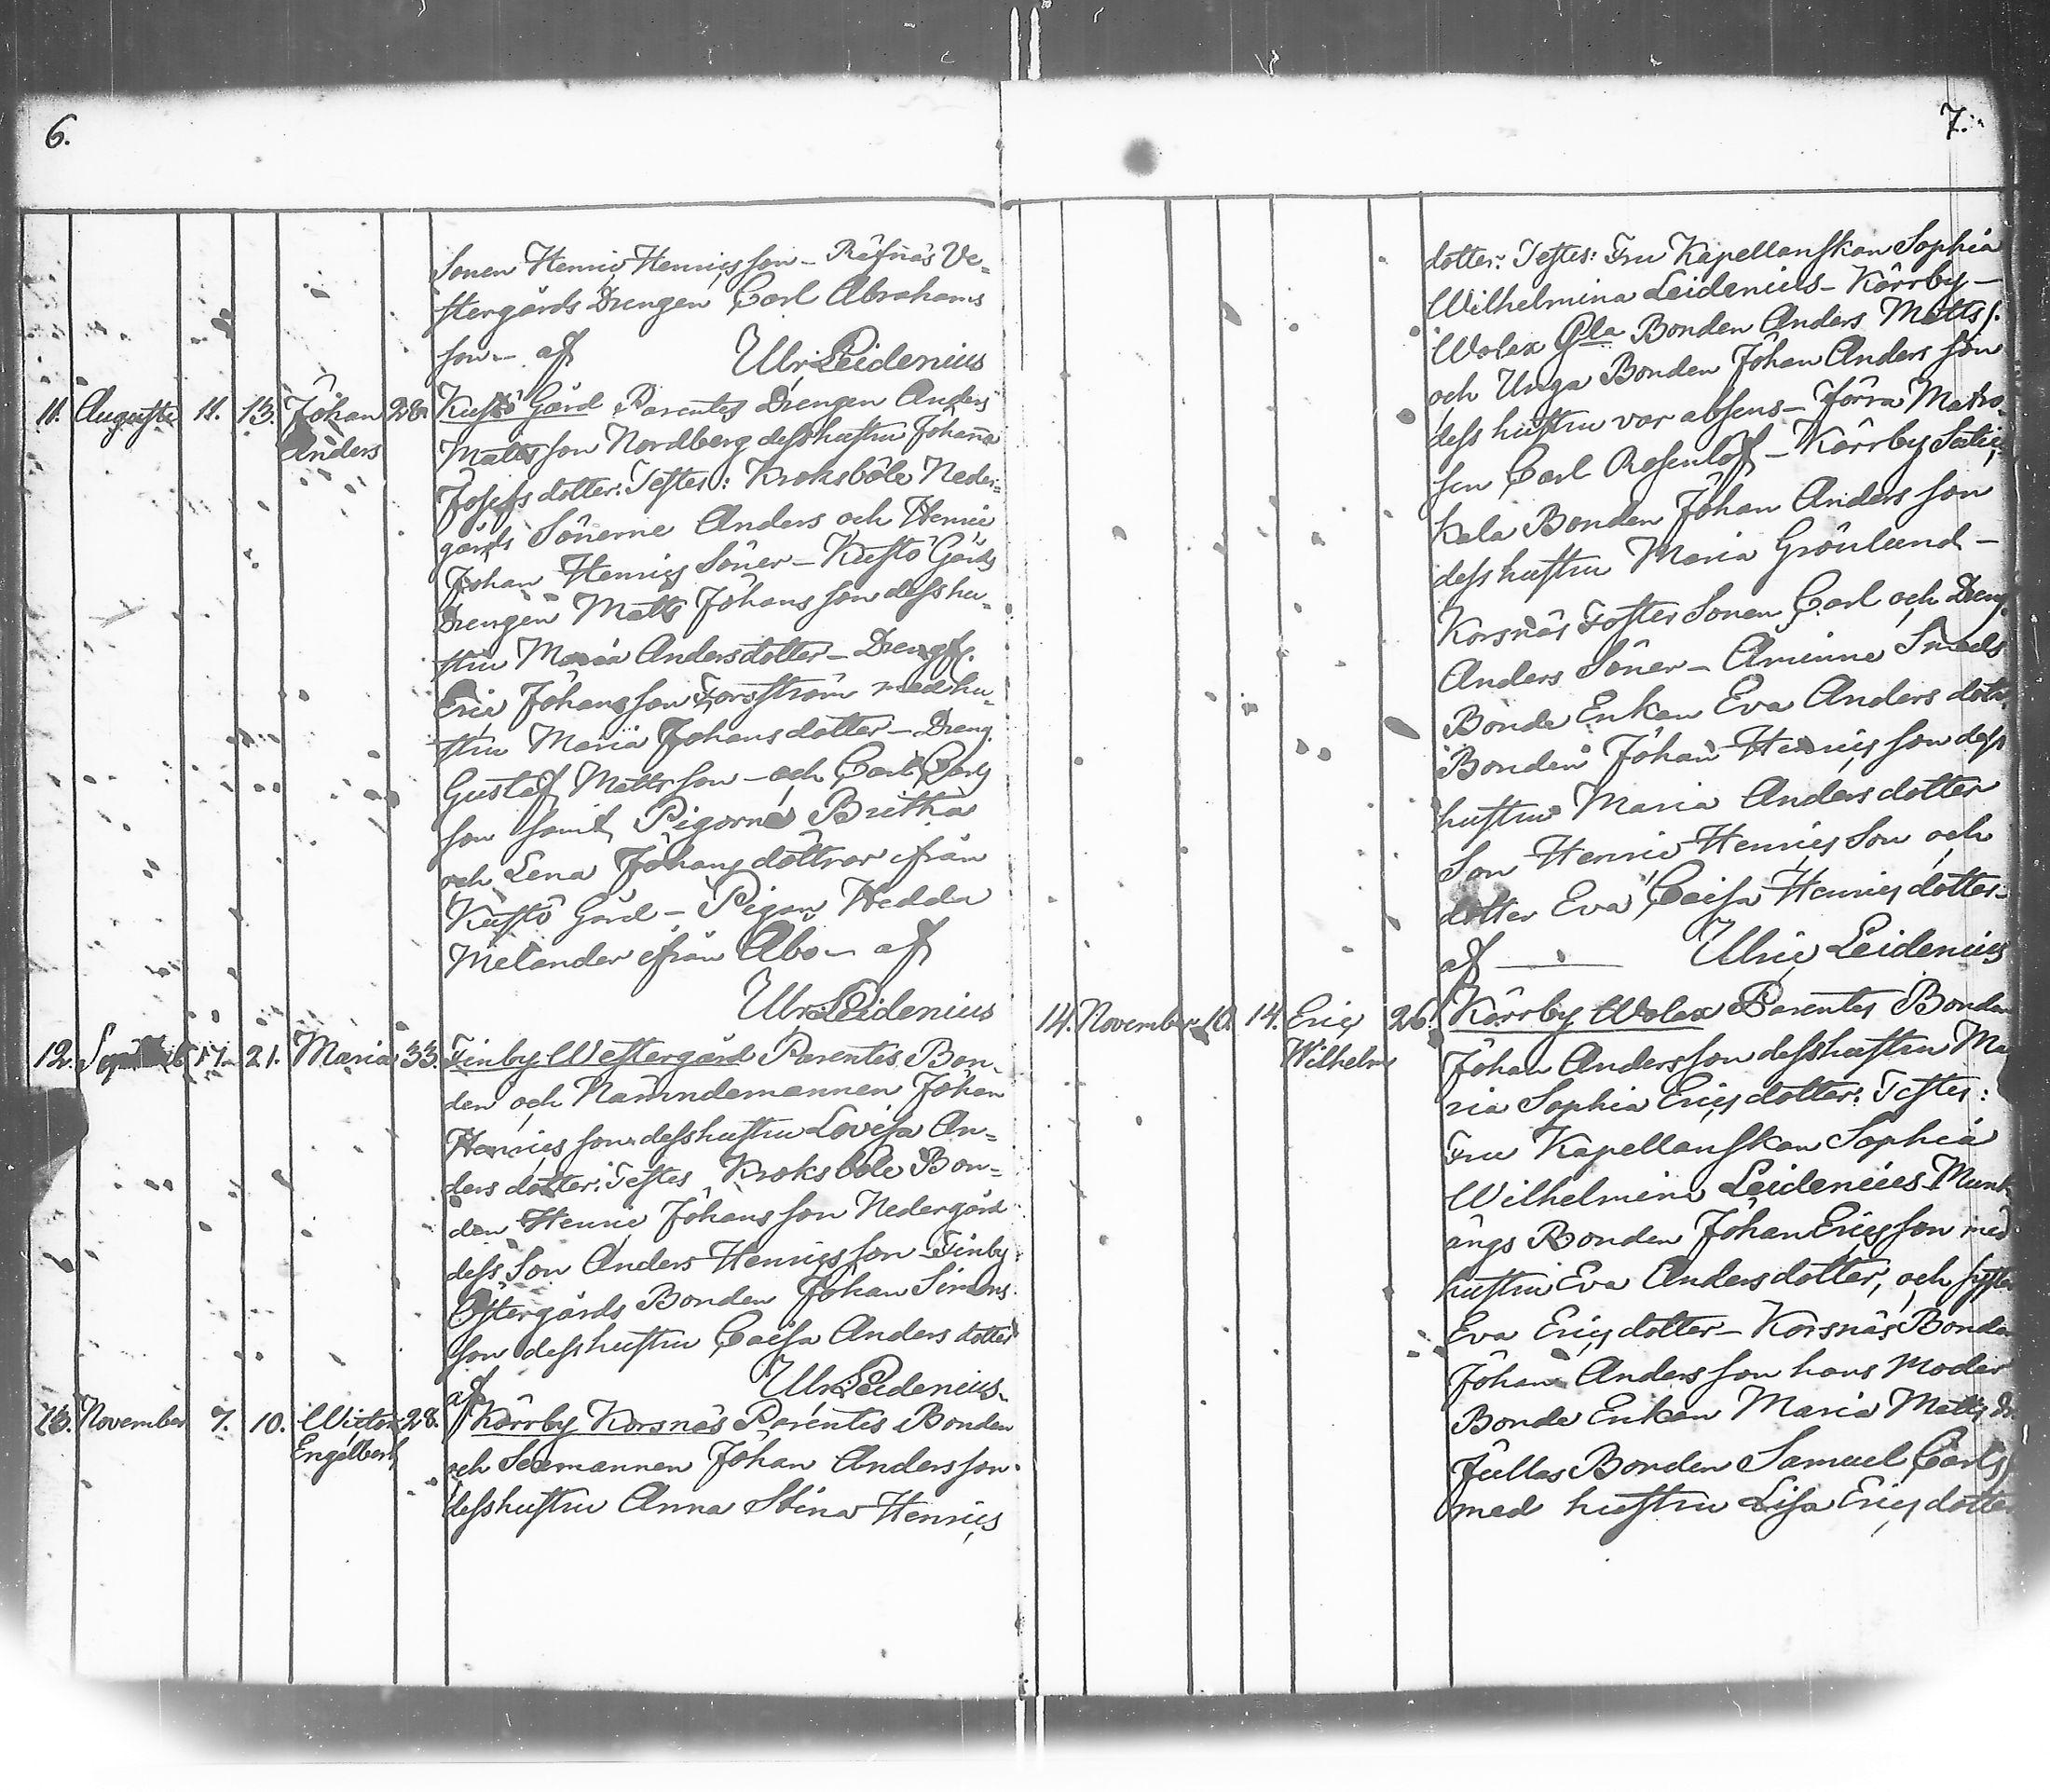 6.
Sonen Henric Henricsson - Räfnäs Ve-
stergårds Drengen Carl Abrahams
son - af Ulr: Leidenius
11. Augusti 11. 13. Johan 28. Kustö Gård Parentes Drengen Anders
Anders Mattsson Nordberg dess hustru Johanna
Josefsdotter: Testes: Kroksböle Neder-
gårds Sönerne Anders och Henric
Johan Henrics Söner - Kustö Gårds
Drengen Matts Johansson dess hu-
stru Maria Andersdotter - Drengs.
Eric Johansson Forsström med hu-
stru Maria Johansdotter - Dreng.
Gustaf Mattsson - och Carl Carls
son samt Pigorna Britha
och Lena Johansdöttrar ifrån
Kustö Gård - Pigan Hedda
Melander ifrån Åbo - af
Ulr: Leidenius
12. 17. 21. Maria 33. Finby Westergård Parentes Bon-
den och Nämndemannen Johan
Henricsson dess hustru Lovisa An-
ders dotter: Testes Kroksböle Bon-
den Henric Johansson Nedergård
dess Son Anders Henricsson - Finby
Östergårds Bonden Johan Simons
son dess hustru Caisa Anders dotter
af Ulr: Leidenius
13. November 7. 10. Victor 28. Kärrby Korsnäs Parentes Bonden
Engelbert och Sexmannen Johan Andersson
dess hustru Anna Stina Henrics
7.
dotter: Testes: Fru Kapellanskan Sophia
Wilhelmina Leidenius - Kärrby -
Wolax Gla Bonden Anders Matts s.
och Unga Bonden Johan Anders son
dess hustru var absens - Förra Matro-
sen Carl Rosenlöf - Kärrby
kala Bonden Johan Anders son
dess hustru Maria Grönlund -
Korsnäs Foster Sonen Carl och Dreng
Anders Söner - Smeds
Bonde Enkan Eva Anders dott.
Bonden Johan Henricsson dess
hustru Maria Anders dotter
Son Henric Henricsson och
dotter Eva Caisa Henricsdotter:
af Ulric Leidenius
14. November 10. 14. Eric 26. Kärrby Wolax Parentes Bonden
Wilhelm Johan Andersson dess hustru Ma
ria Sophia Ericsdotter: Testes:
Fru Kapellanskan Sophia
Wilhelmina Leidenius Munk
ängs Bonden Johan Ericsson med
hustru Eva Andersdotter, och syster
Eva Ericsdotter - Korsnäs Bonden
Johan Andersson hans Moder
Bonde Enkan Maria Matts
Jullas Bonden Samuel Carls
med hustru Lisa Ericsdotter